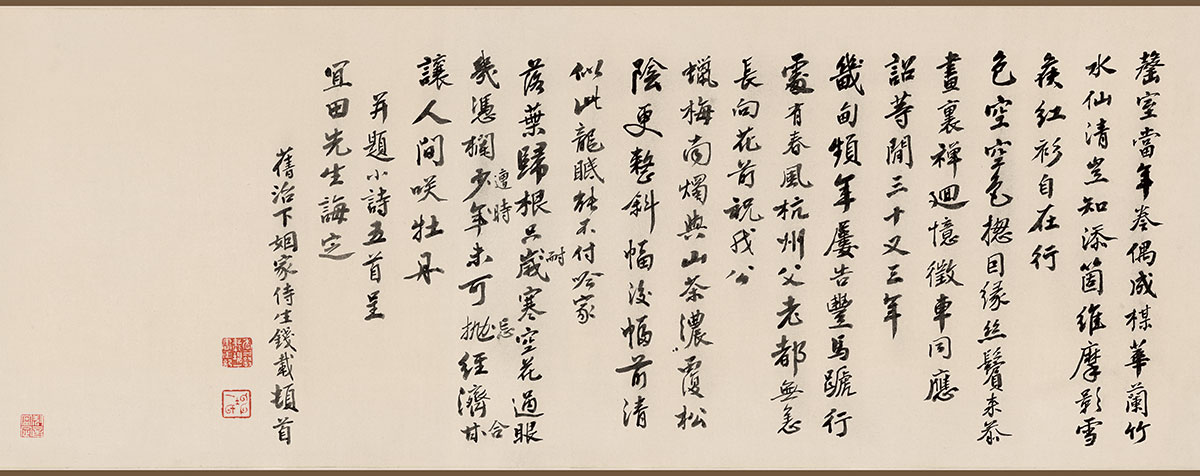 罄室當年卷偶成楳華蘭竹
水仙清豈知添箇維摩影雪
矦紅衫自在行
色空空色揔因緣絲鬢來忝
畫裏禪迴憶徵車同應
詔等閒三十又三年
畿甸頻年屢告豐馬蹏行
處有春風杭州父老都無恙
長向花前祝我公
蠟梅南燭與山茶濃覆松
陰更整斜幅後幅前清
似此龍眠能不付唫家
耐
落葉歸根只歲寒空花過眼
幾憑欄少年未可拋經濟甘
遭時
忌
合
讓人間咲牡丹
并題小詩五首呈
宜田先生誨定
舊治下姻家侍生錢載頓首